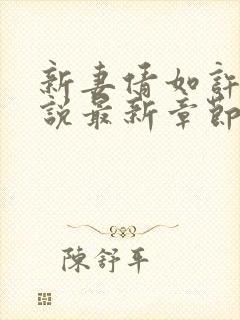 新妻情如許
說最新章節
陳舒平